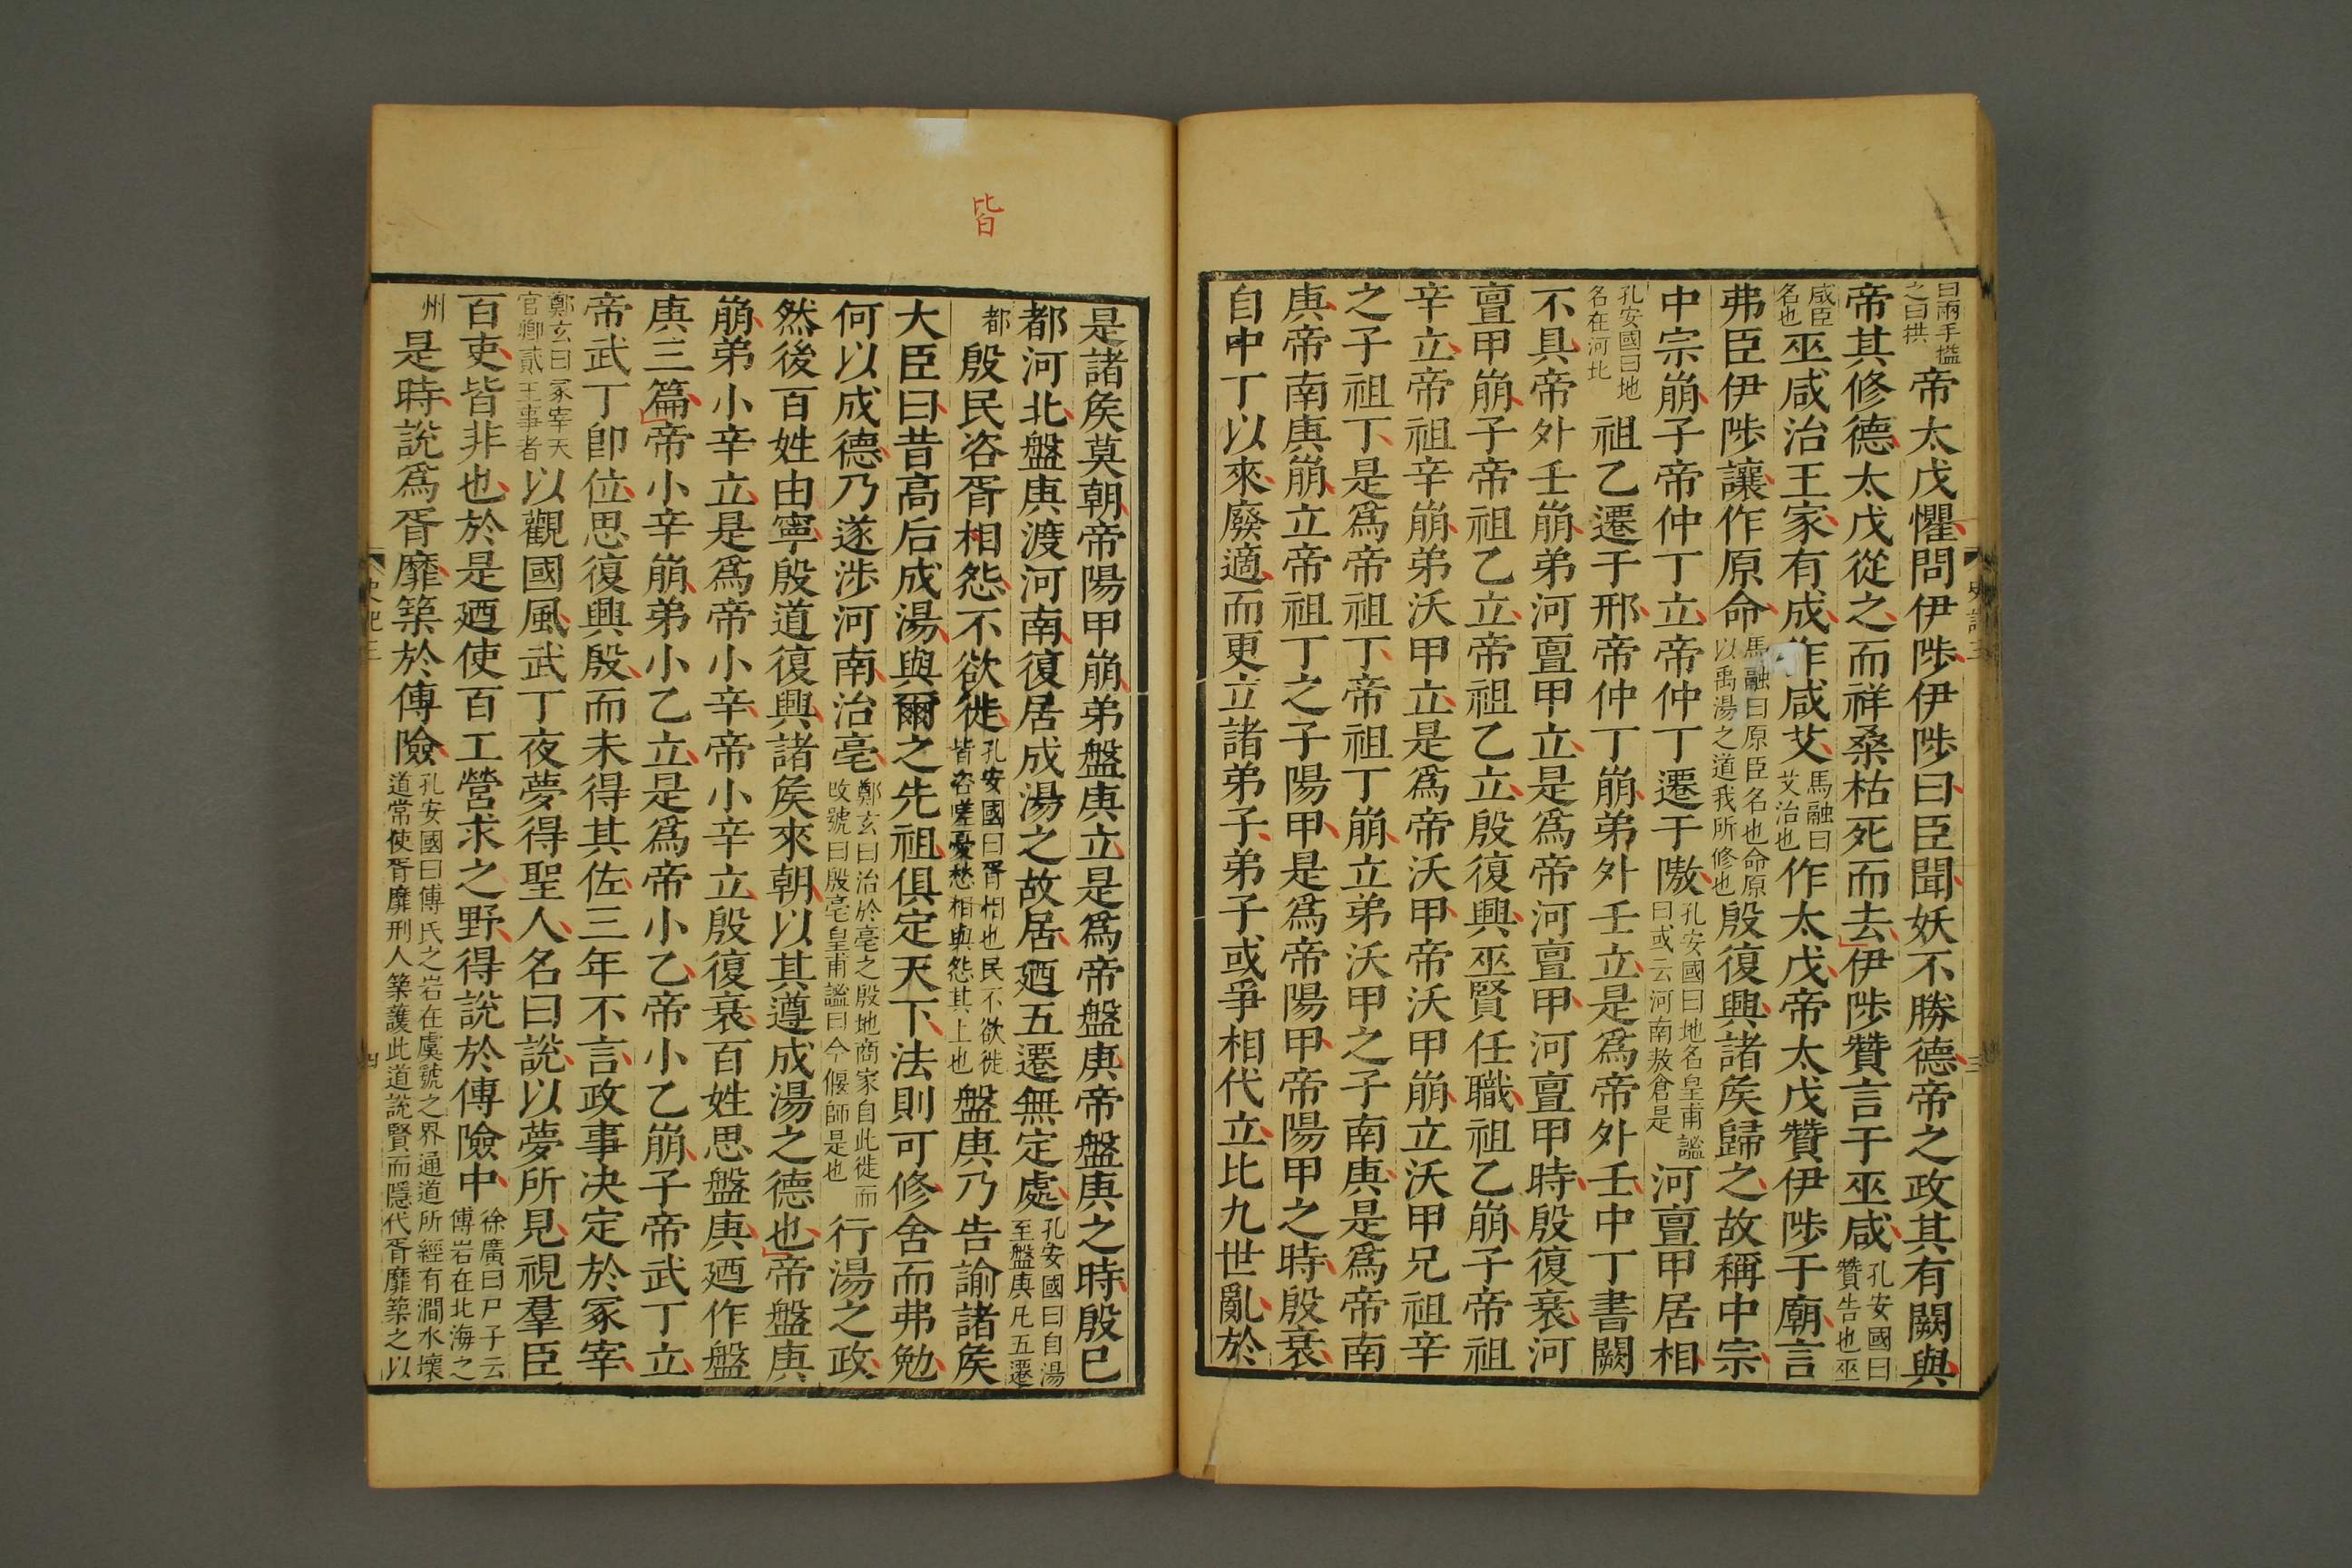 曰兩手搤之曰拱帝太戊懼問伊陟伊陟曰臣聞妖不勝德帝之政其有闕與
帝其修德太戊從之而祥桑枯死而去伊陟贊言于巫咸孔安國曰贊告也巫
咸臣名也巫咸治王家有成作咸艾馬融曰艾治也作太戊帝太戊贊伊陟于廟言
弗臣伊陟讓作原命馬融曰原臣名也命原以禹湯之道我所修也殷復興諸矦歸之故稱中宗
中宗崩子帝仲丁立帝仲丁遷于隞孔安國曰地名皇甫謐曰或云河南敖倉是河亶甲居相
孔安國曰地名在河北祖乙遷于邢帝仲丁崩弟外壬立是爲帝外壬中丁書闕
不具帝外壬崩弟河亶甲立是爲帝河亶甲河亶甲時殷復衰河
亶甲崩子帝祖乙立帝祖乙立殷復興巫賢任職祖乙崩子帝祖
辛立帝祖辛崩弟沃甲立是爲帝沃甲帝沃甲崩立沃甲兄祖辛
之子祖丁是爲帝祖丁帝祖丁崩立弟沃甲之子南庚是爲帝南
庚帝南庚崩立帝祖丁之子陽甲是爲帝陽甲帝陽甲之時殷衰
自中丁以來廢適而更立諸弟子弟子或爭相代立比九世亂於
史記三
三
皆
是諸矦莫朝帝陽甲崩弟盤庚立是爲帝盤庚帝盤庚之時殷已
都河北盤庚渡河南復居成湯之故居廼五遷無定處孔安國曰自湯至盤庚凡五遷
都殷民咨胥相怨不欲徙孔安國曰胥相也民不欲徙皆咨嗟憂愁相與怨其上也盤庚乃告諭諸矦
大臣曰昔高后成湯與爾之先祖俱定天下法則可修舍而弗勉
何以成德乃遂涉河南治亳鄭玄曰治於亳之殷地商家自此徙而改號曰殷亳皇甫謐曰今偃師是也行湯之政
然後百姓由寧殷道復興諸矦來朝以其遵成湯之德也帝盤庚
崩弟小辛立是爲帝小辛帝小辛立殷復衰百姓思盤庚廼作盤
庚三篇帝小辛崩弟小乙立是爲帝小乙帝小乙崩子帝武丁立
帝武丁卽位思復興殷而未得其佐三年不言政事決定於冢宰
鄭玄曰冢宰天官卿貳王事者以觀國風武丁夜夢得聖人名曰說以夢所見視羣臣
百吏皆非也於是廼使百工營求之野得說於傅險中徐廣曰尸子云傅岩在北海之
州是時說爲胥靡築於傅險孔安國曰傅氏之岩在虞虢之界通道所經有澗水壞道常使胥靡刑人築護此道說賢而隱代胥靡築之以
史記三
四